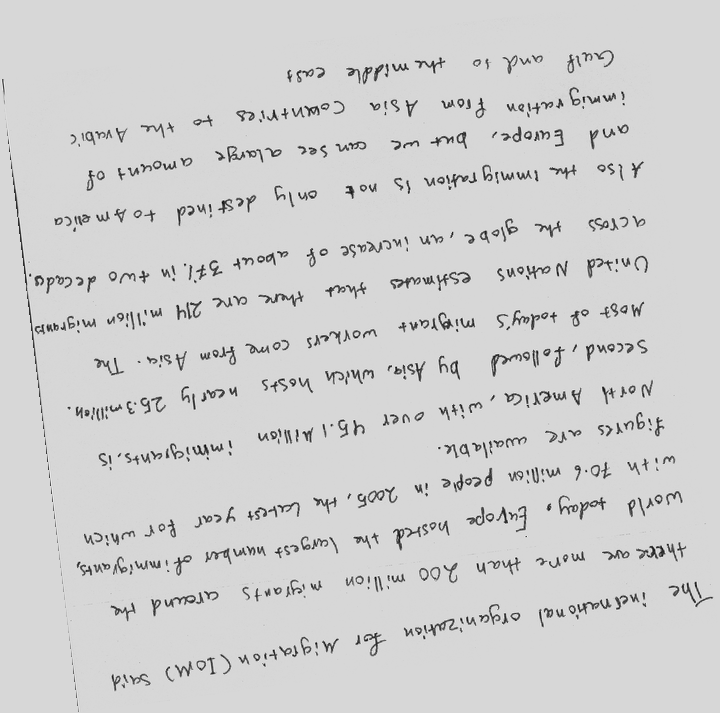 The inernational organization for Migration (IOM) said
there are more than 200 million migrants around the
world today. Europe hosted the largest number of immigrants,
with 70.6 million people in 2005, the latest year for which
figures are available.
North America, with over 45.1 Million immigrants, is
second, followed by Asia, which hosts nearly 25.3 million.
Most of today's migrant workers come from Asia. The
United Nations estimates that there are 214 million migrants
across the globe, an increase of about 37% in two decades.
Also the immigration is not only destined to America
and Europe, but we can see a large amount of
immigration from Asia Countries to the Arabic
Gulf and to the middle east